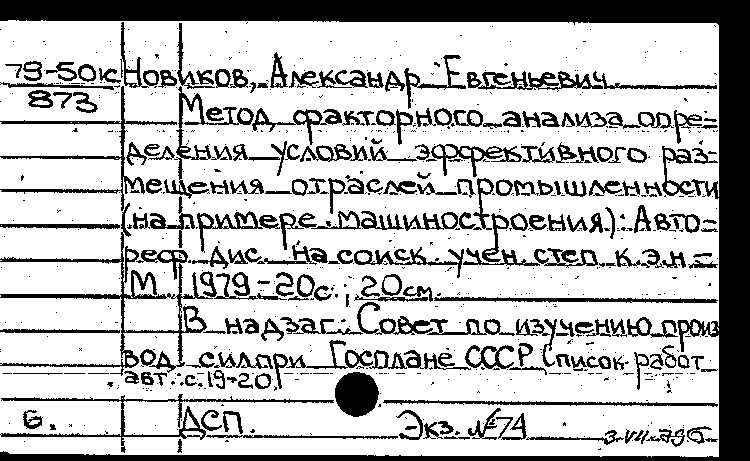 79-50к Новиков, Александр Евгеньевич.
873 Метод факторного анализа опре=
деления условий эффективного раз-
мещения отраслей промышленности
(на примере машиностроения): Авто=
реф. дис. на соиск. учен. степ к.э.н =
М 1979 - 20с.; 20см.
В надзаг.: Совет по изучению произ
вод. сил при Госплане СССР Список работ
авт.: с. 19-20)
Б. ДСП. Экз. №74
3.VII.79